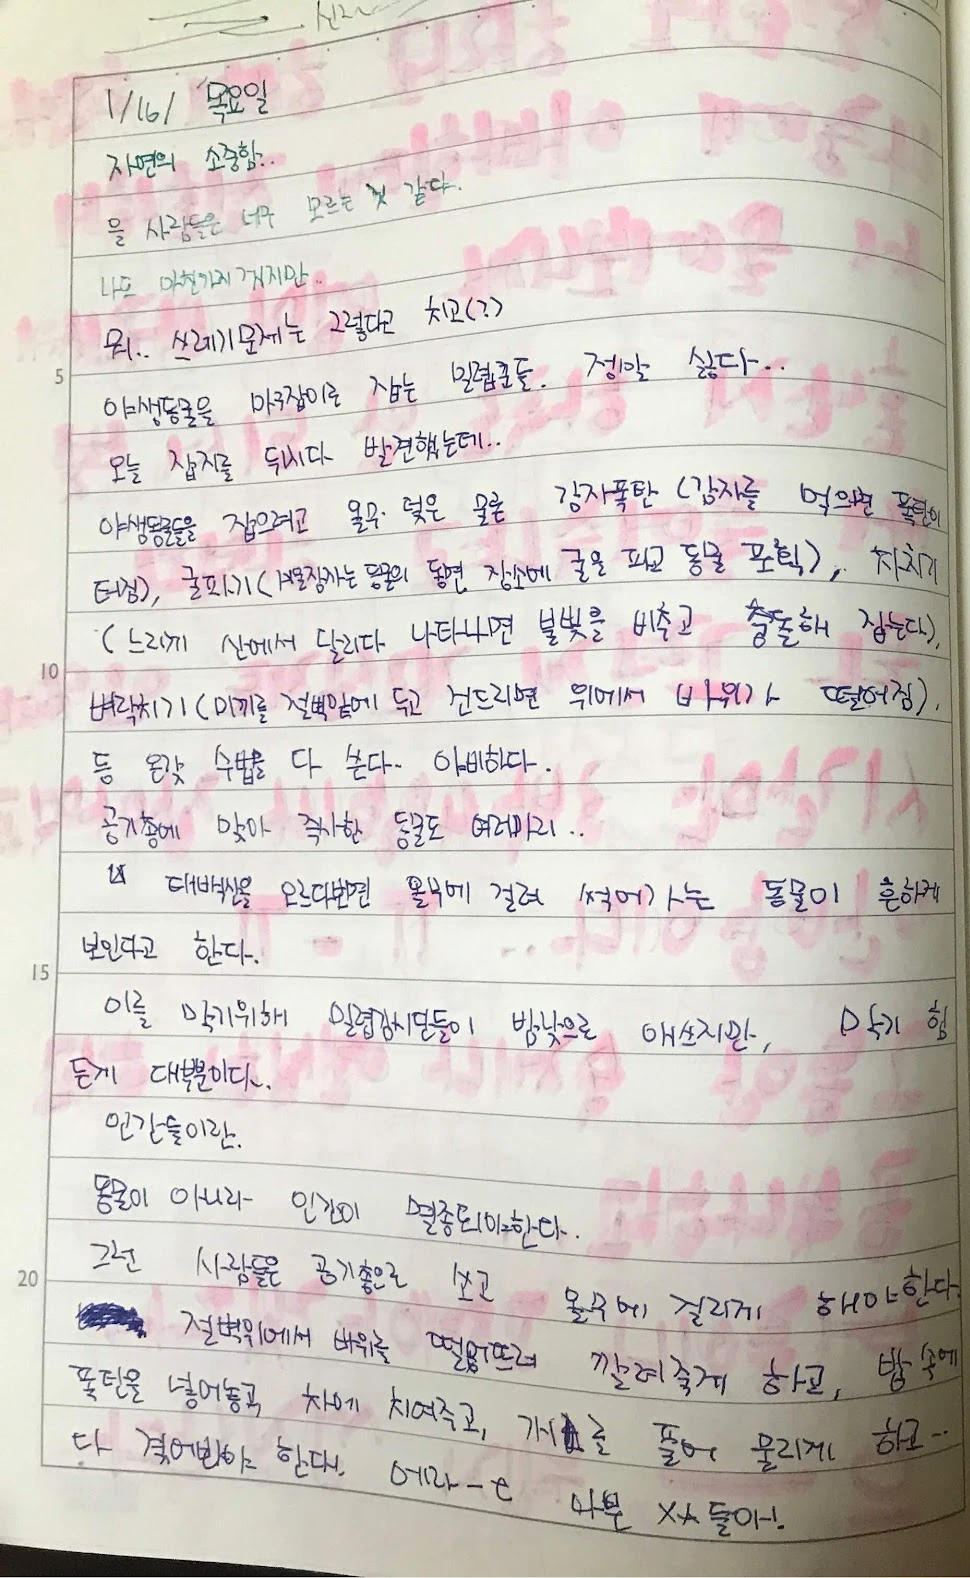 1/16/ 목요일
자연의 소중함..
을 사람들은 너무 모르는 것 같다.
나도 마찬가지겠지만..
뭐.. 쓰레기문제는 그렇다고 치고(?)
야생동물을 마구잡이로 잡는 밀렵꾼들. 정말 싫다..
오늘 잡지를 뒤지다 발견했는데..
야생동물들을 잡으려고 올무·덫은 물론 감자폭탄(감자를 먹으면 폭탄이
터짐), 굴파기(겨울잠자는 동물의 동면 장소에 굴을 파고 동물 포획), 차치기
(느리게 산에서 달리다 나타나면 불빛을 비추고 충돌해 잡는다),
벼락치기(미끼를 절벽앞에 두고 건드리면 위에서 바위가 떨어짐).
등 온갖 수법을 다 쓴다.. 야비하다.
공기총에 맞아 즉사한 동물도 여러마리..
태백산을 오르다보면 올무에 걸려 썩어가는 동물이 흔하게
보인다고 한다.
이를 막기위해 밀렵감시단들이 밤낮으로 애쓰지만, 막기 힘
든게 대부분이다..
인간들이란.
동물이 아니라 인간이 멸종되어야한다.
그런 사람들은 공기총으로 쏘고 올무에 걸리게 해야한다.
절벽위에서 바위를 떨어뜨려 깔려죽게 하고, 밥 속에
폭탄을 넣어놓고 차에 치여주고, 개를 풀어 물리게 하고..
다 겪어봐야 한다. 에라-ㄷ 나쁜 XX들아!